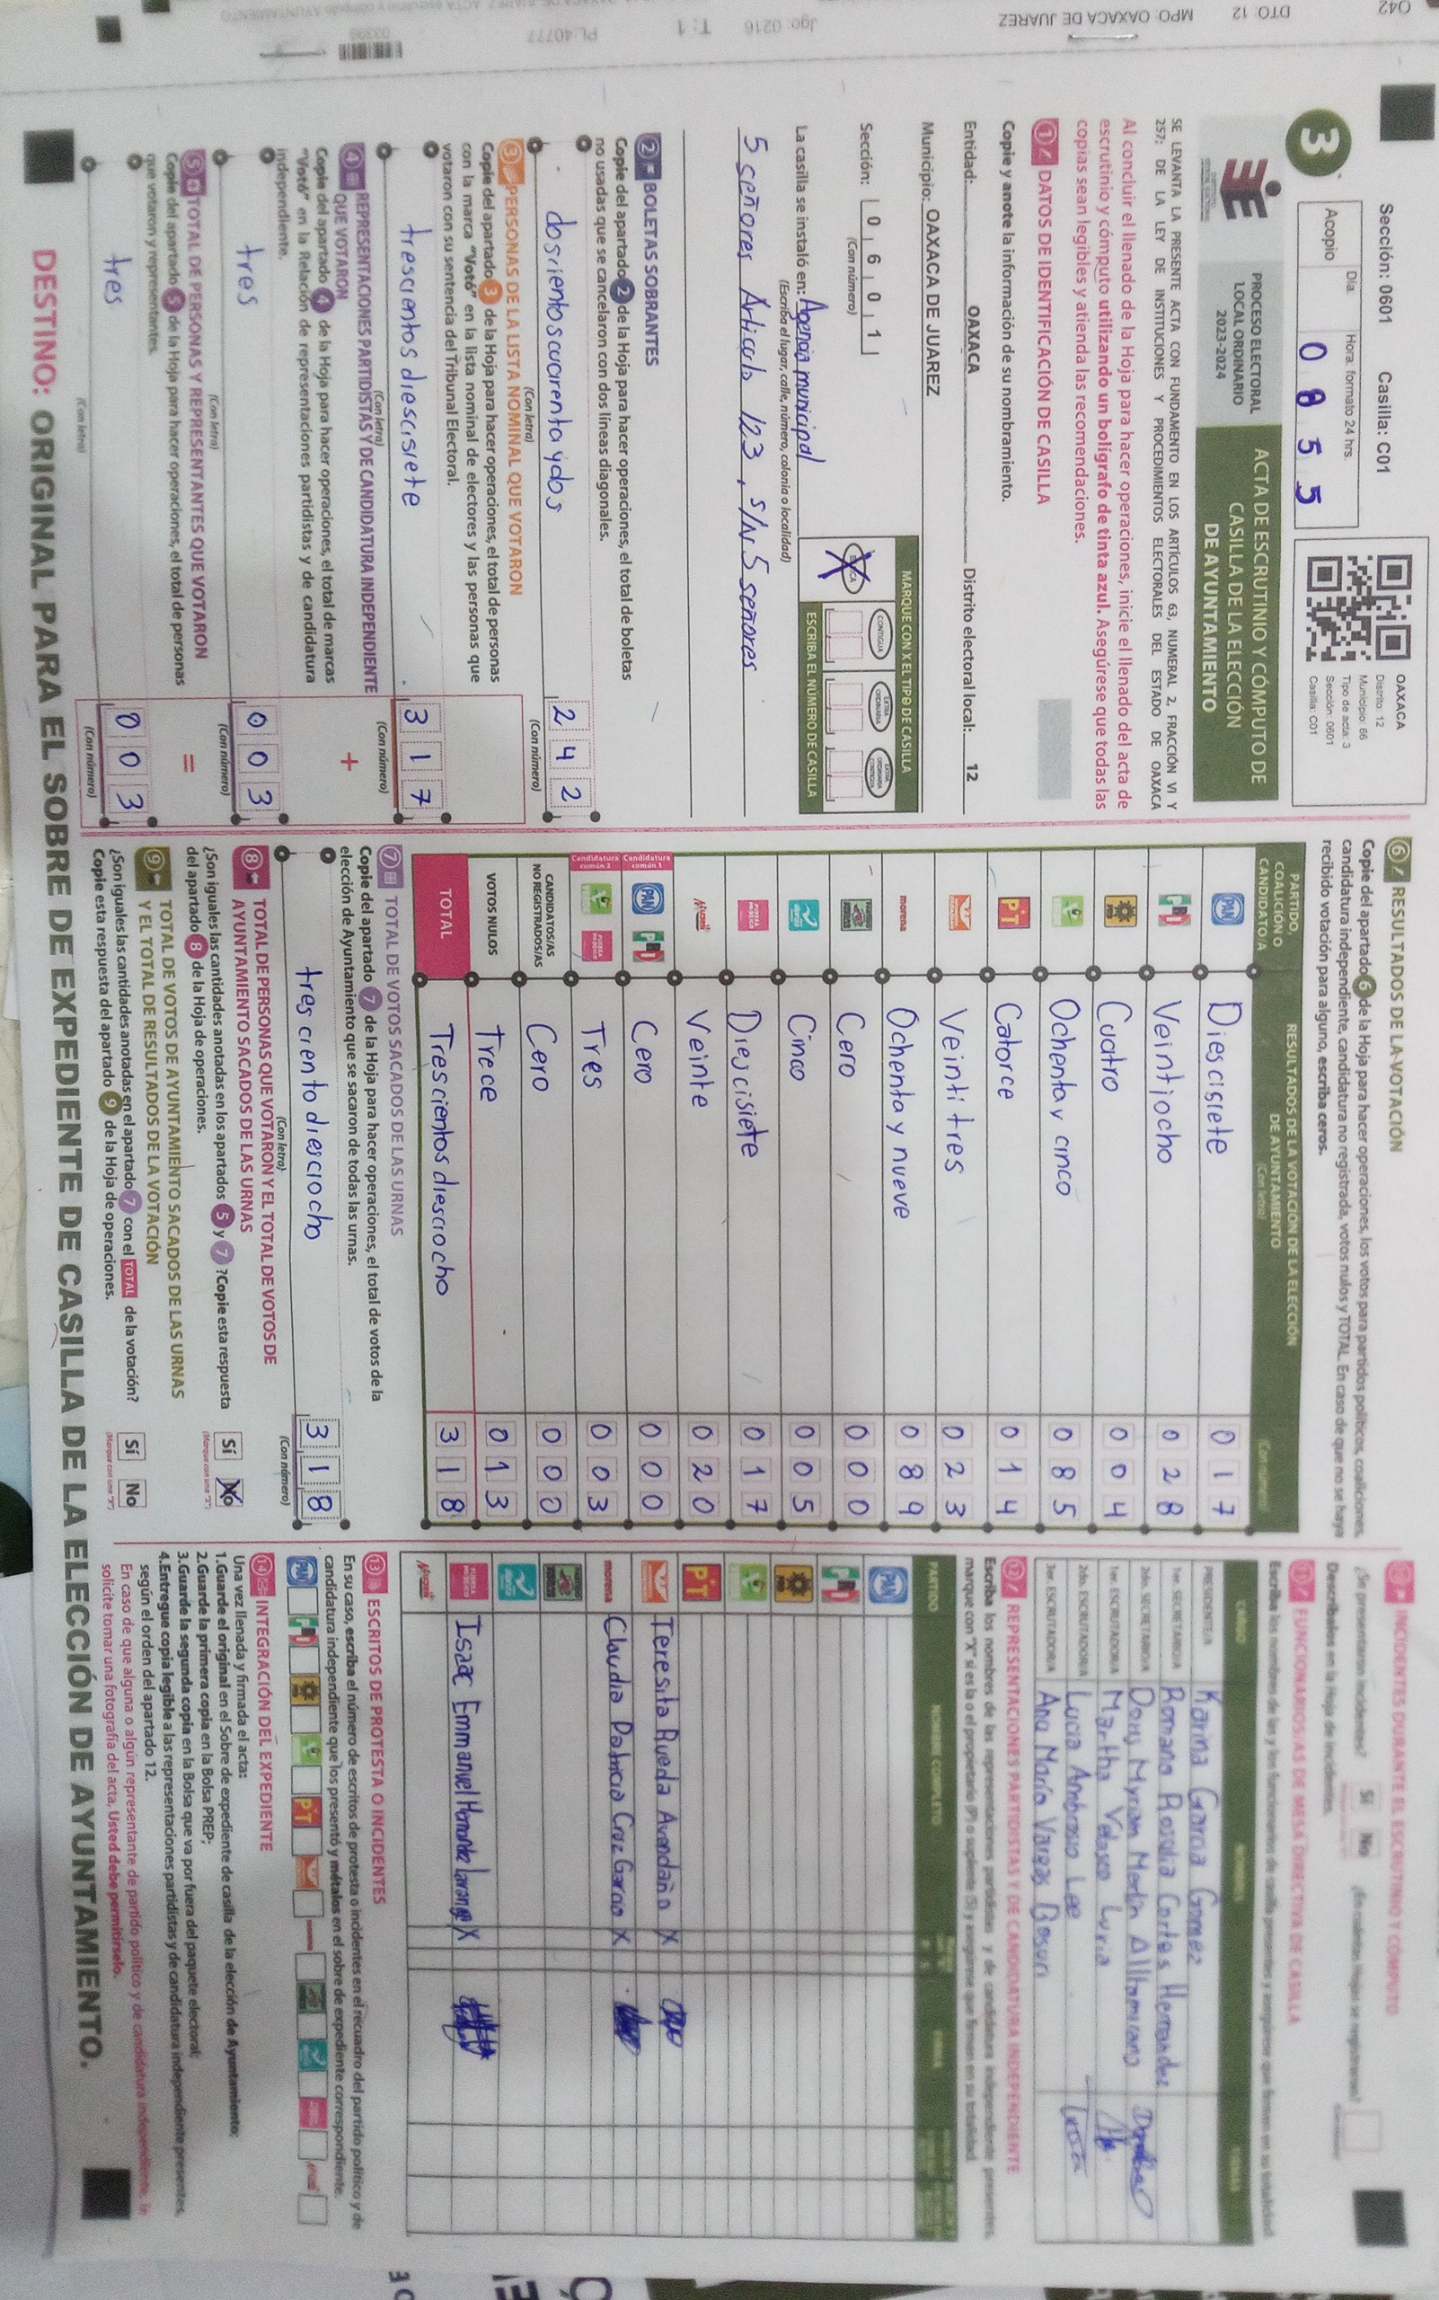 042 DTO: 12 MPO: OAXACA DE JUAREZ Jgo: 0216 T: 1 PL: 40777
Sección: 0601 Casilla: C01
3
Día. Hora: formato 24 hrs.
Acopio 08 55
OAXACA
Distrito: 12
Municipio: 66
Tipo de acta: 3
Sección: 0601
Casilla: C01
PROCESO ELECTORAL
LOCAL ORDINARIO
2023-2024
ACTA DE ESCRUTINIO Y CÓMPUTO DE
CASILLA DE LA ELECCIÓN
DE AYUNTAMIENTO
SE LEVANTA LA PRESENTE ACTA CON FUNDAMENTO EN LOS ARTÍCULOS 63, NUMERAL 2, FRACCIÓN VI Y
257; DE LA LEY DE INSTITUCIONES Y PROCEDIMIENTOS ELECTORALES DEL ESTADO DE OAXACA
Al concluir el llenado de la Hoja para hacer operaciones, inicie el llenado del acta de
escrutinio y cómputo utilizando un bolígrafo de tinta azul. Asegúrese que todas las
copias sean legibles y atienda las recomendaciones.
1 DATOS DE IDENTIFICACIÓN DE CASILLA
Copie y anote la información de su nombramiento.
Entidad: OAXACA Distrito electoral local: 12
Municipio: OAXACA DE JUAREZ
Sección: 0 6 0 1
(Con número)
MARQUE CON X EL TIPO DE CASILLA
CONTIGUA
ESCRIBA EL NÚMERO DE CASILLA
La casilla se instaló en: Agencia municipal
(Escriba el lugar, calle, número, colonia o localidad)
5 señores Articulo 123, s/N 5 señores
2 BOLETAS SOBRANTES
Copie del apartado 2 de la Hoja para hacer operaciones, el total de boletas
no usadas que se cancelaron con dos líneas diagonales.
doscientos cuarenta y dos 2 4 2
(Con letra) (Con número)
3 PERSONAS DE LA LISTA NOMINAL QUE VOTARON
Copie del apartado 3 de la Hoja para hacer operaciones, el total de personas
con la marca "Votó" en la lista nominal de electores y las personas que
votaron con su sentencia del Tribunal Electoral.
trescientos diescisiete 3 1 7
(Con letra) (Con número)
4 REPRESENTACIONES PARTIDISTAS Y DE CANDIDATURA INDEPENDIENTE
QUE VOTARON +
Copie del apartado 4 de la Hoja para hacer operaciones, el total de marcas
"Votó" en la Relación de representaciones partidistas y de candidatura
independiente.
tres 0 0 3
(Con letra) (Con número)
5 TOTAL DE PERSONAS Y REPRESENTANTES QUE VOTARON =
Copie del apartado 5 de la Hoja para hacer operaciones, el total de personas
que votaron y representantes.
tres 0 0 3
(Con letra) (Con número)
6 RESULTADOS DE LA VOTACIÓN
Copie del apartado 6 de la Hoja para hacer operaciones, los votos para partidos políticos, coaliciones,
candidatura independiente, candidatura no registrada, votos nulos y TOTAL. En caso de que no se haya
recibido votación para alguno, escriba ceros.
PARTIDO, COALICIÓN O CANDIDATO/A
RESULTADOS DE LA VOTACIÓN DE LA ELECCIÓN DE AYUNTAMIENTO
(Con letra) (Con número)
PAN Diescisiete 0 1 7
PRI Veintiocho 0 2 8
PRD Cuatro 0 0 4
Ochenta y cinco 0 8 5
PT Catorce 0 1 4
Veintitres 0 2 3
morena Ochenta y nueve 0 8 9
Cero 0 0 0
Cinco 0 0 5
Diescisiete 0 1 7
Mujer Veinte 0 2 0
Candidatura común 1 PAN PRI Cero 0 0 0
Candidatura común 2 Tres 0 0 3
CANDIDATOS/AS NO REGISTRADOS/AS Cero 0 0 0
VOTOS NULOS trece 0 1 3
TOTAL Trescientos diesciocho 3 1 8
7 TOTAL DE VOTOS SACADOS DE LAS URNAS
Copie del apartado 7 de la Hoja para hacer operaciones, el total de votos de la
elección de Ayuntamiento que se sacaron de todas las urnas.
tresciento diesciocho 3 1 8
(Con letra) (Con número)
8 TOTAL DE PERSONAS QUE VOTARON Y EL TOTAL DE VOTOS DE
AYUNTAMIENTO SACADOS DE LAS URNAS
¿Son iguales las cantidades anotadas en los apartados 5 y 7 ? Copie esta respuesta
del apartado 8 de la Hoja de operaciones.
Sí No
9 TOTAL DE VOTOS DE AYUNTAMIENTO SACADOS DE LAS URNAS
Y EL TOTAL DE RESULTADOS DE LA VOTACIÓN
¿Son iguales las cantidades anotadas en el apartado 7 con el TOTAL de la votación?
Copie esta respuesta del apartado 9 de la Hoja de operaciones.
Sí No
10 INCIDENTES DURANTE EL ESCRUTINIO Y CÓMPUTO
¿Se presentaron incidentes? Sí No
Descríbalos en la Hoja de incidentes.
11 FUNCIONARIOS/AS DE MESA DIRECTIVA DE CASILLA
CARGO NOMBRES FIRMAS
PRESIDENTE/A Karina Garcia Gomez
1er. SECRETARIO/A Romana Rosalia Cortes Hernandez
2do. SECRETARIO/A Doris Myriam Martin Altamirano
1er. ESCRUTADOR/A Martha Velasco Luria
2do. ESCRUTADOR/A Lucia Ambrosio Lee
3er. ESCRUTADOR/A Ana Maria Vargas
12 REPRESENTACIONES PARTIDISTAS Y DE CANDIDATURA INDEPENDIENTE
Escriba los nombres de las representaciones partidistas y de candidatura independiente presentes,
marque con "X" si es la o el propietario (P) o suplente (S) y asegúrese que firmen en su totalidad.
PARTIDO NOMBRE COMPLETO FIRMA
PAN
PRI
PRD
PT
Teresita Rueda Avendaño X
morena Claudia Patricia Cruz Garcia X
Isaac Emmanuel X
Mujer
13 ESCRITOS DE PROTESTA O INCIDENTES
En su caso, escriba el número de escritos de protesta o incidentes en el recuadro del partido político y de
candidatura independiente que los presentó y métalos en el sobre de expediente correspondiente.
14 INTEGRACIÓN DEL EXPEDIENTE
Una vez llenada y firmada el acta:
1.Guarde el original en el Sobre de expediente de casilla de la elección de Ayuntamiento;
2.Guarde la primera copia en la Bolsa PREP;
3.Guarde la segunda copia en la Bolsa que va por fuera del paquete electoral;
4.Entregue copia legible a las representaciones partidistas y de candidatura independiente presentes,
según el orden del apartado 12.
En caso de que alguna o algún representante de partido político y de candidatura independiente, le
solicite tomar una fotografía del acta, Usted debe permitírselo.
DESTINO: ORIGINAL PARA EL SOBRE DE EXPEDIENTE DE CASILLA DE LA ELECCIÓN DE AYUNTAMIENTO.